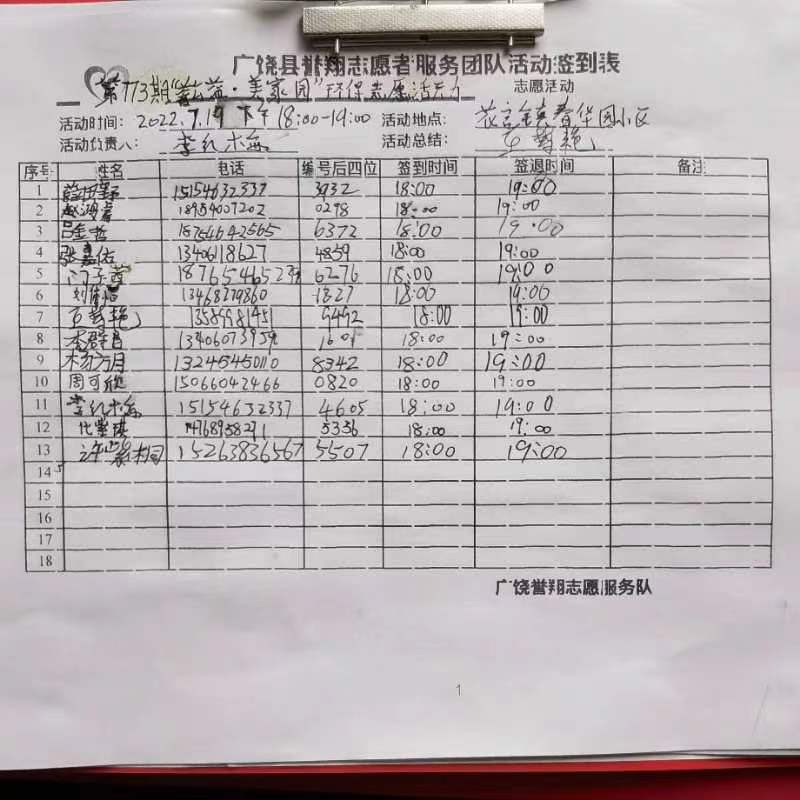 广饶县誉翔志愿者服务团队活动签到表
第773期 公益·美家园"环保志愿活动 志愿活动
活动时间: 2022.7.19 下午18:00-19:00 活动地点: 花官镇春华园小区
活动负责人: 李红梅 活动总结:
序号 姓名 电话 编号后四位 签到时间 签退时间 备注
1 15154632337 3932 18:00 19:00
2 18954007202 0298 18:00 19:00
3 吕金哲 18754642565 6372 18:00 19:00
4 张嘉佑 13406118627 4859 18:00 19:00
5 18765465298 6276 18:00 19:00
6 13468279860 1827 18:00 19:00
7 13589981451 9492 18:00 19:00
8 13406073959 1601 18:00 19:00
9 杨方月 13245450110 8342 18:00 19:00
10 周可欣 15066042466 0820 18:00 19:00
11 李红梅 15154632337 4605 18:00 19:00
12 5356 18:00 19:00
13 15263836567 5507 18:00 19:00
14
15
16
17
18
广饶誉翔志愿服务队
1